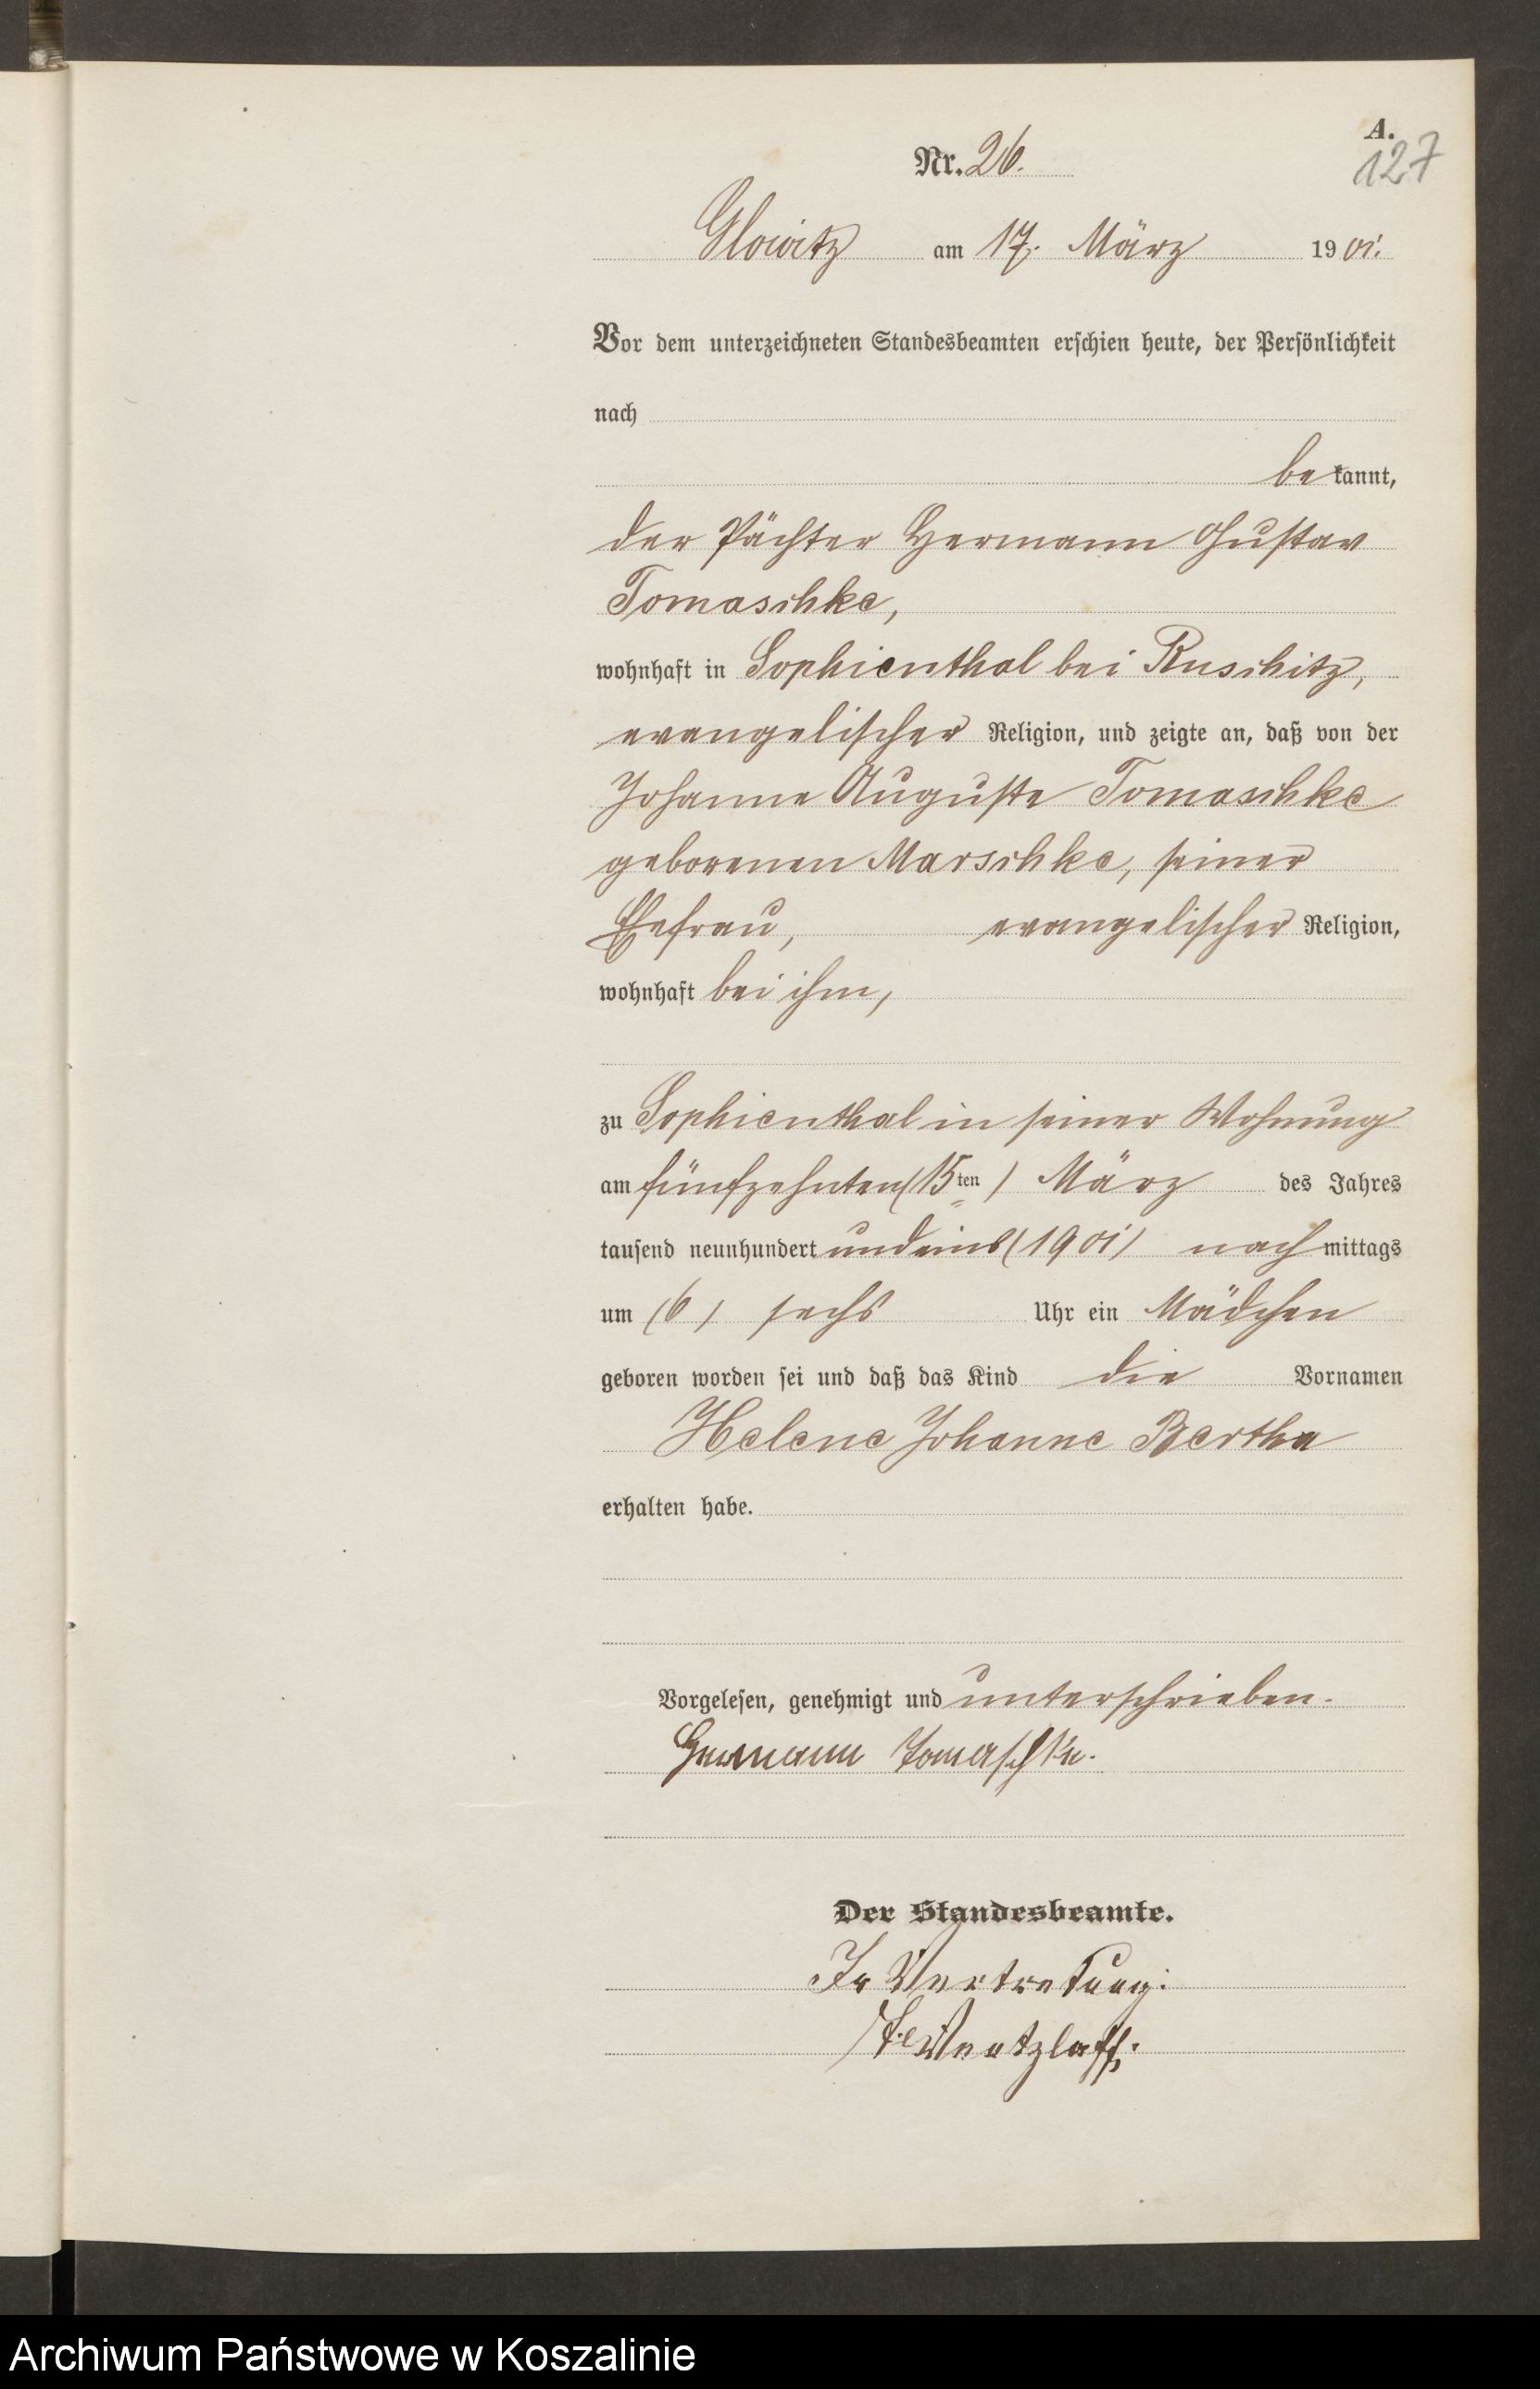 A.
127
Nr. 26.
Glowitz am 17. März 1901.
Vor dem unterzeichneten Standesbeamten erschien heute, der Persönlichkeit
nach
bekannt,
der Pächter Hermann Gustav
Tomaschke,
wohnhaft in Sophienthal bei Ruschitz,
evangelischer Religion, und zeigte an, daß von der
Johanne Auguste Tomaschke
geborenen Marschke, seiner
Ehefrau, evangelischer Religion,
wohnhaft bei ihm,
zu Sophienthal in seiner Wohnung
am fünfzehnten (15ten) März des Jahres
tausend neunhundert undeins (1901) nachmittags
um (6) sechs Uhr ein Mädchen
geboren worden sei und daß das Kind die Vornamen
Helene Johanne Bertha
erhalten habe.
Vorgelesen, genehmigt und unterschrieben.
Hermann Tomaschke.
Der Standesbeamte.
In Vertretung:
Wentzlaff.
Archiwum Państwowe w Koszalinie